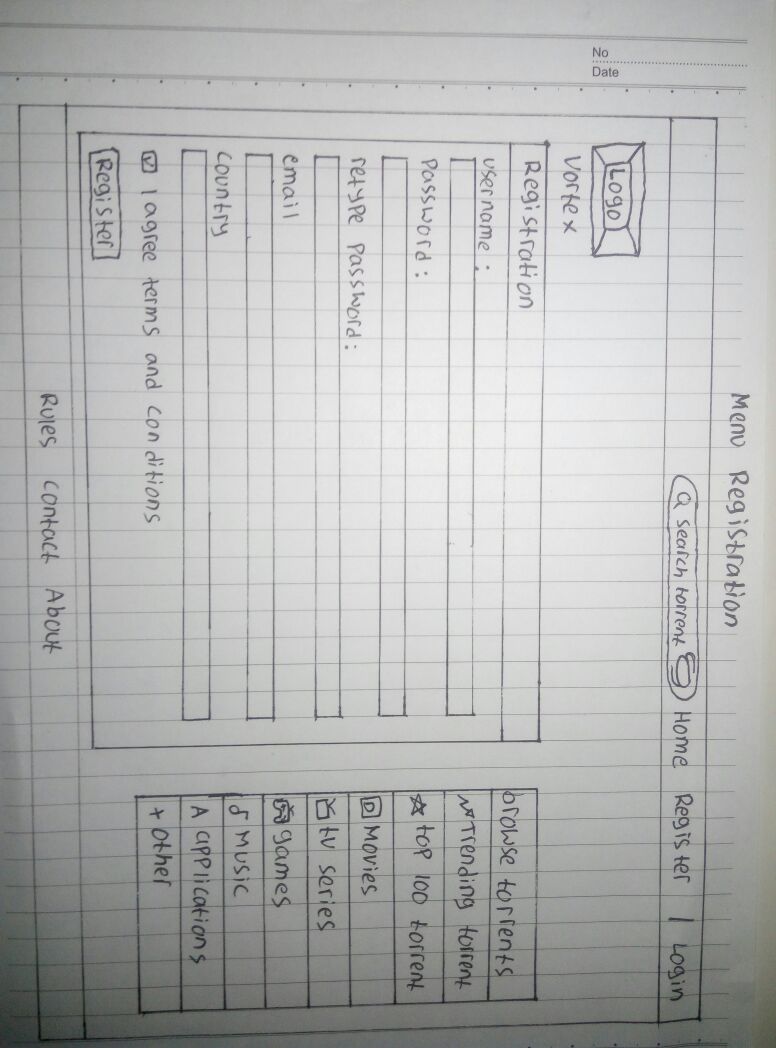 No
Date
Menu Registration
search torrent Home Register | Login
Logo
Vortex
Registration
username :
Password :
retype Password :
email
Country
I agree terms and conditions
Register
browse torrents
Trending torrent
top 100 torrent
Movies
tv series
games
Music
A applications
+ Other
Rules Contact About